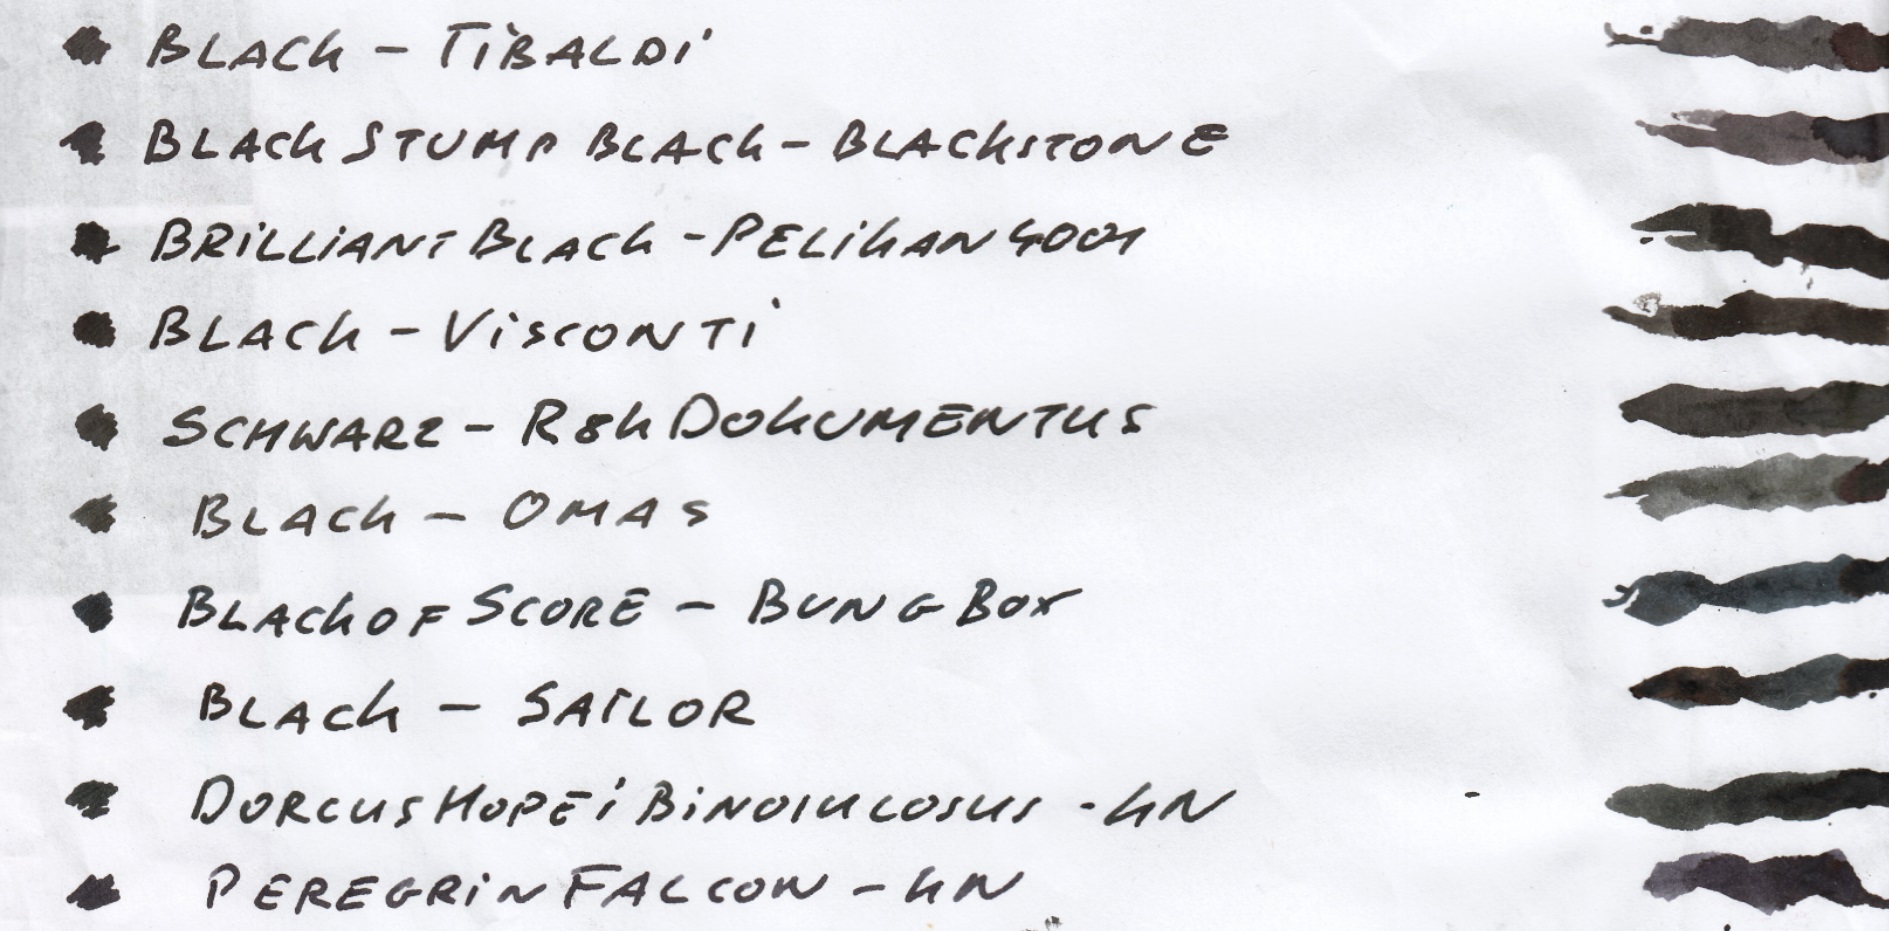 BLACK - TIBALDI
BLACK STUMP BLACK - BLACKSTONE
BRILLIANT BLACK - PELIKAN 4001
BLACK - VISCONTI
SCHWARZ - R&K DOKUMENTUS
BLACK - OMAS
BLACK OF SCORE - BUNGBOX
BLACK - SAILOR
DORCUS HOPEI - KN
PEREGRIN FALCON - KN